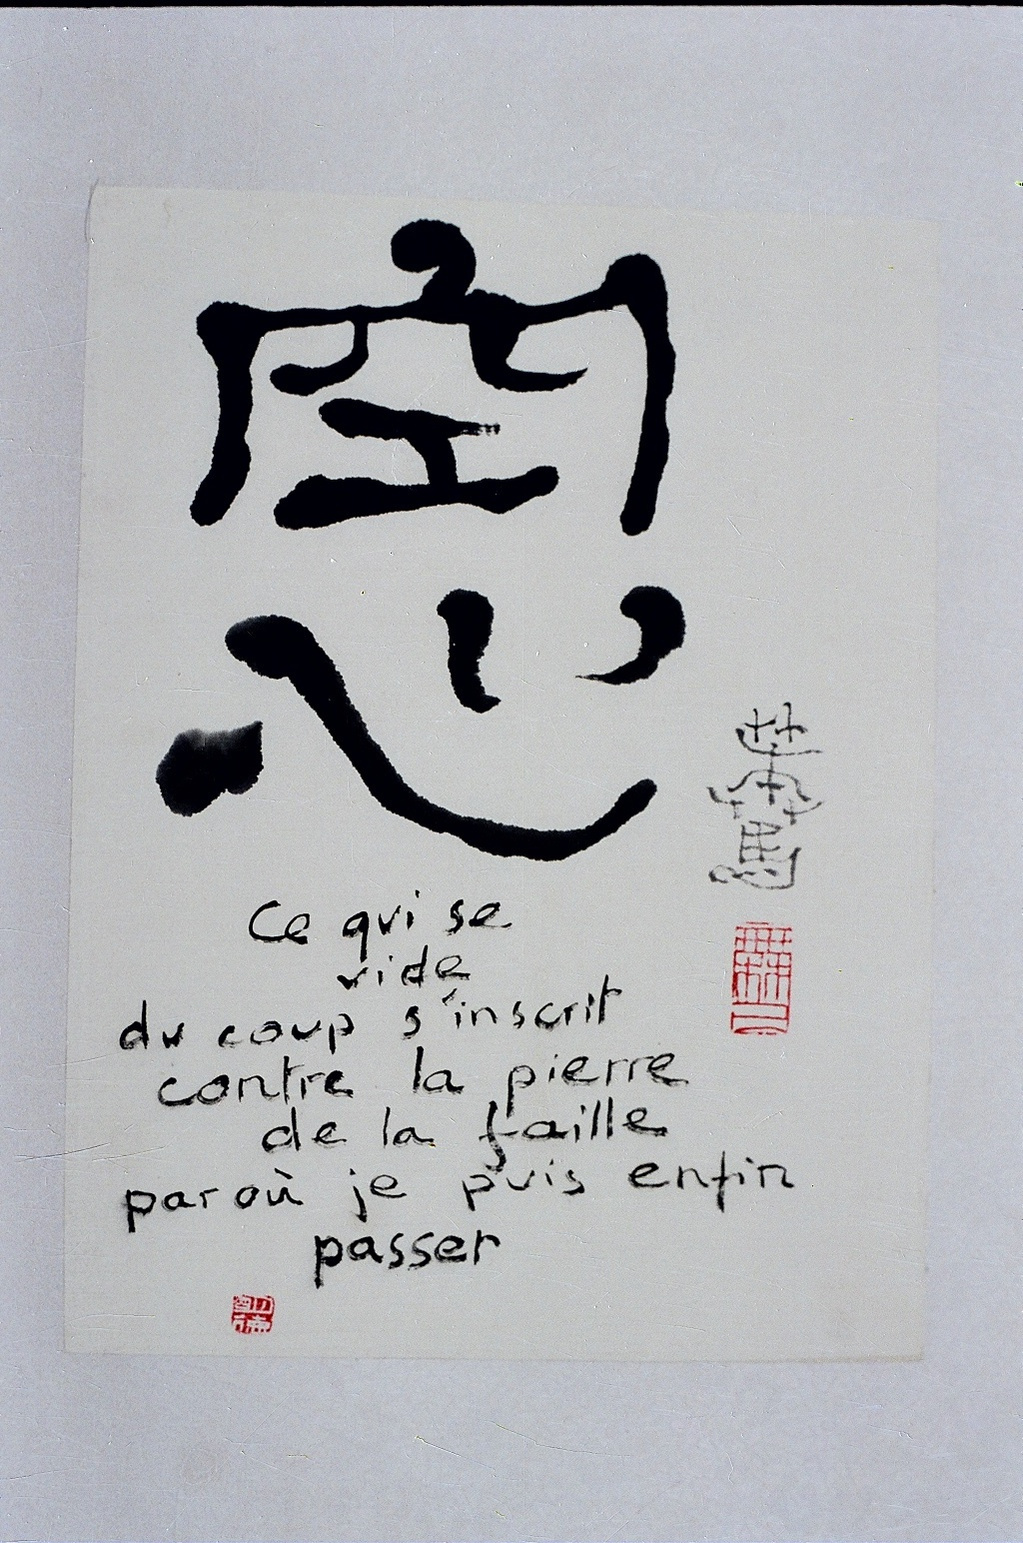 空
心
Ce qui se
vide
du coup s'inscrit
contre la pierre
de la faille
par où je puis enfin
passer